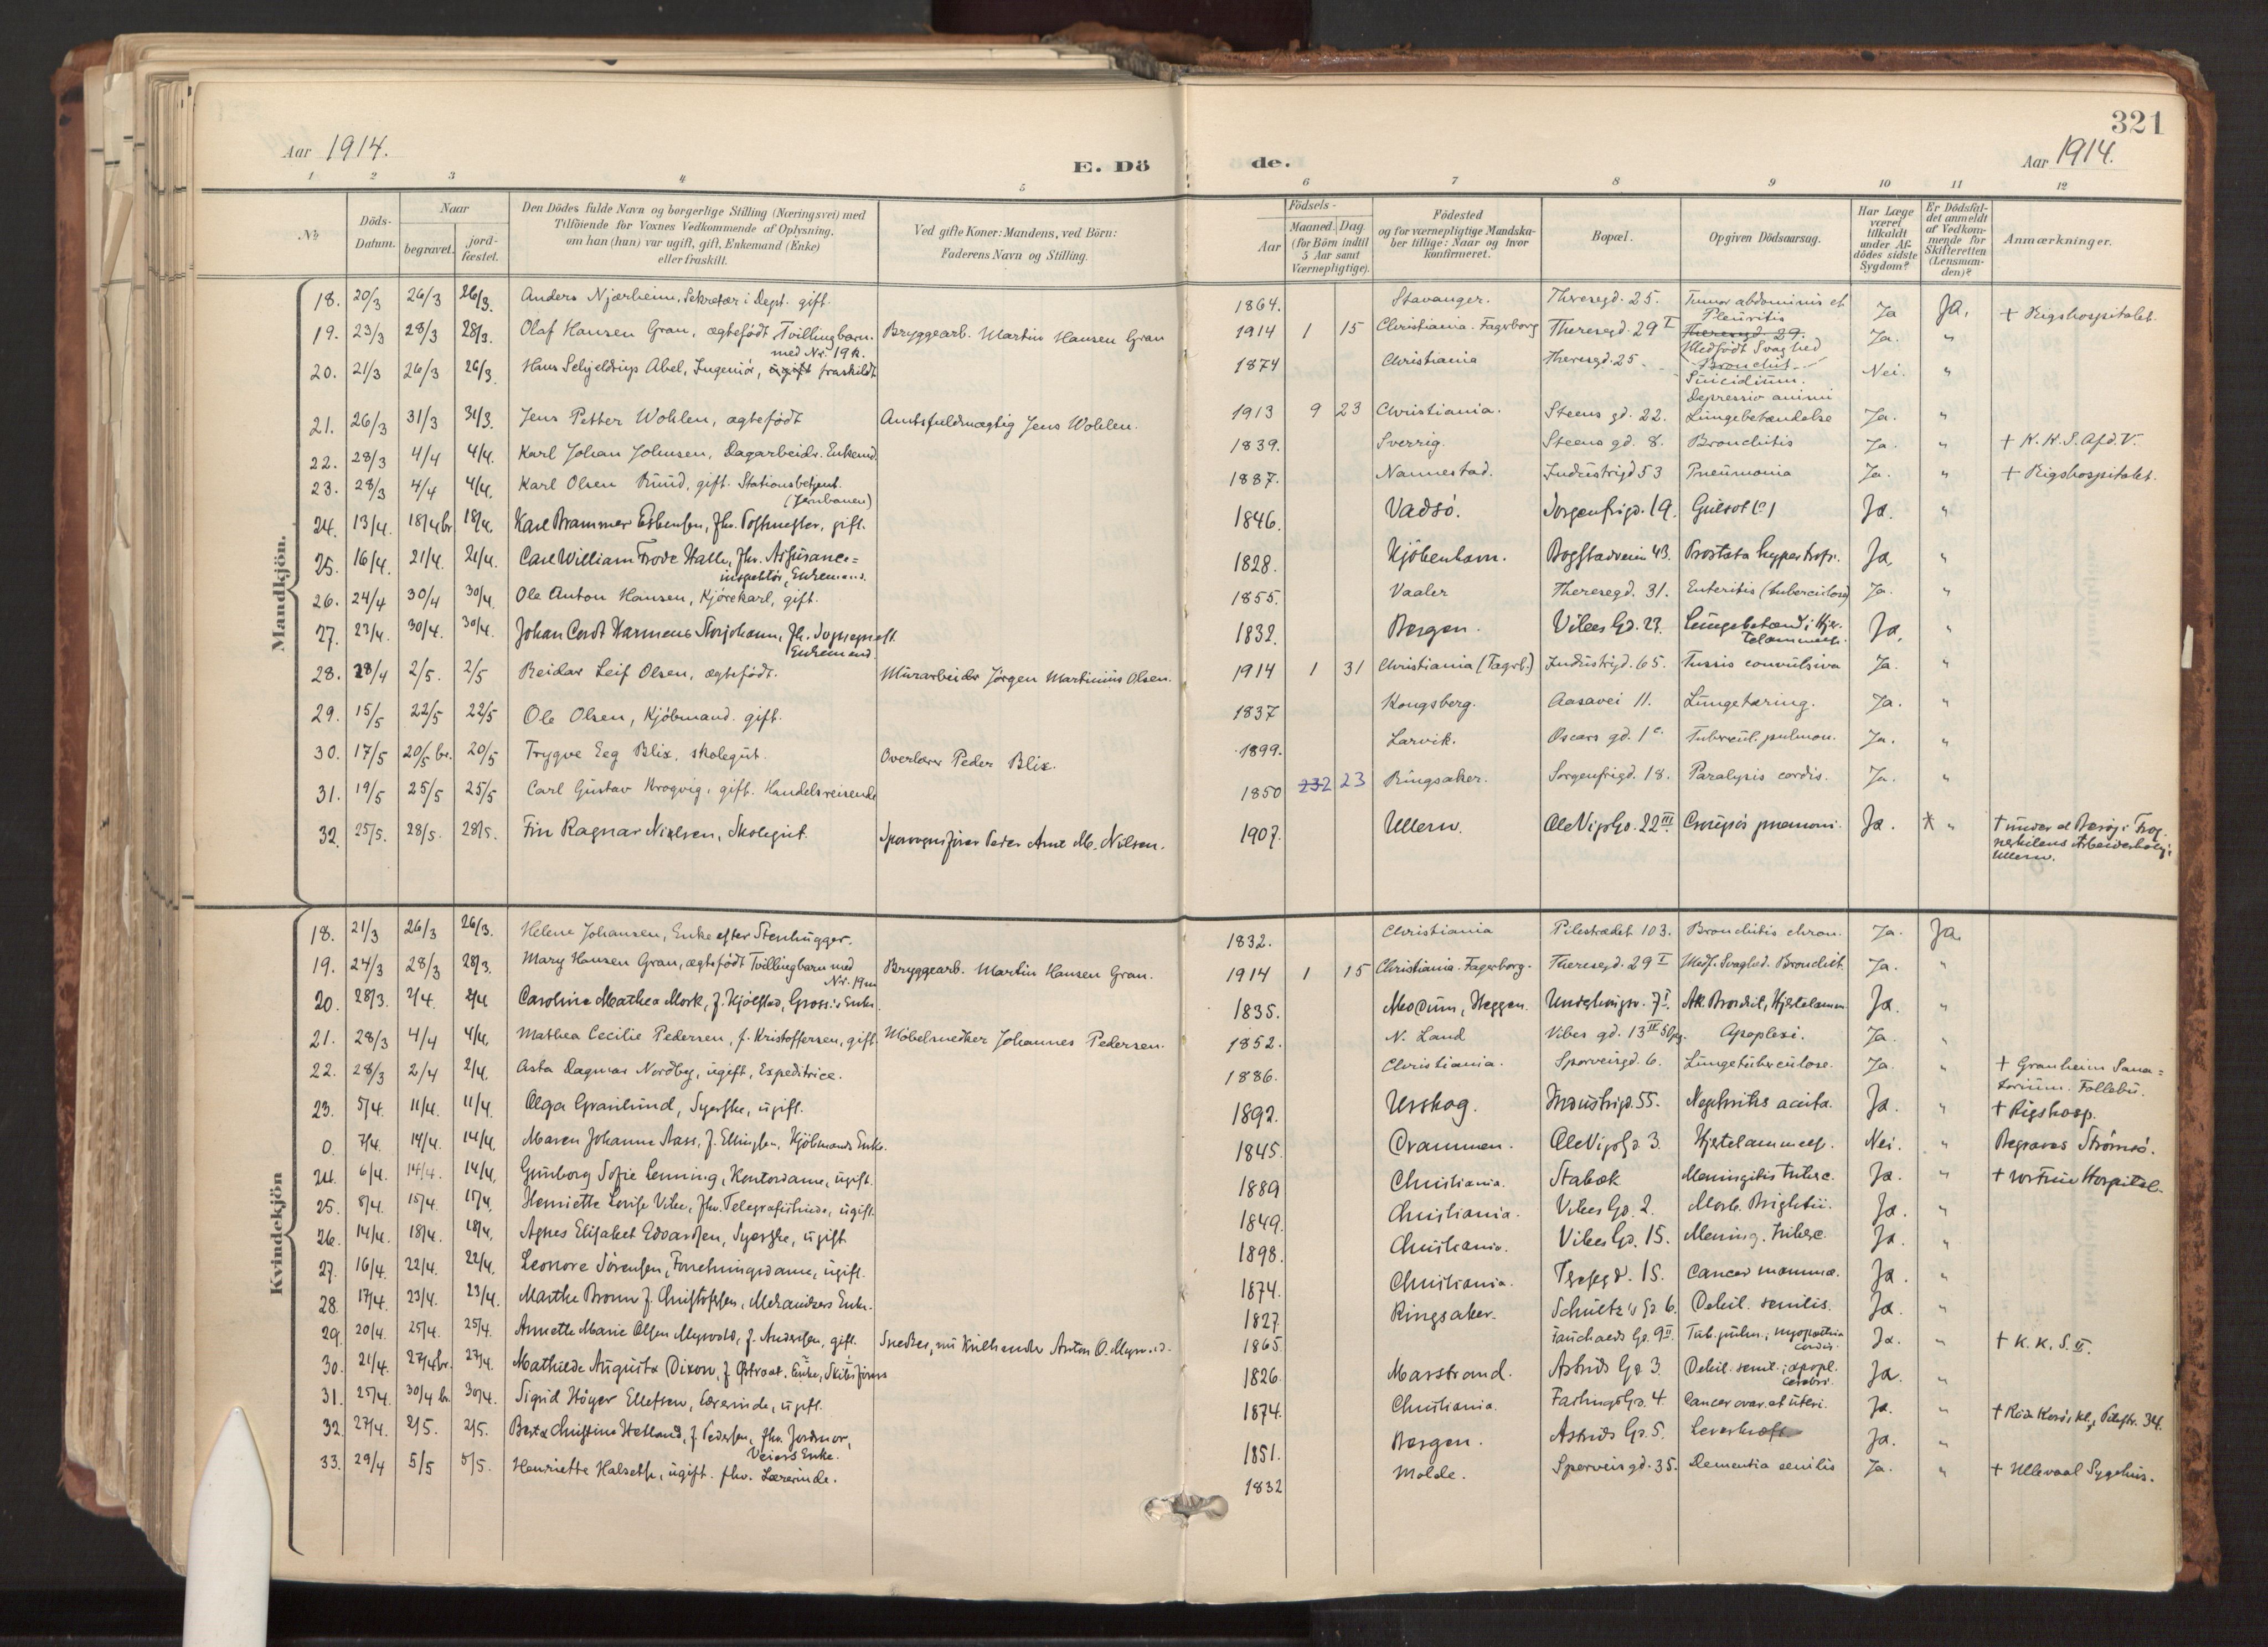 321
Aar 1914.
E. Dö
de.
Aar 1914.
1 2 3 4 5 6 7 8 9 10 11 12
№
Döds-Datum.
Naar
begravet. jord-fæstet.
Den Dödes fulde Navn og borgerlige Stilling (Næringsvei) med
Tilföiende for Voxnes Vedkommende af Oplysning,
om han (hun) var ugift, gift, Enkemand (Enke)
eller fraskilt.
Ved gifte Koner: Mandens, ved Börn:
Faderens Navn og Stilling.
Födsels-
Aar
Maaned. Dag
(for Börn indtil
5 Aar samt
Værnepligtige).
Födested
og for værnepligtige Mandska-
ber tillige: Naar og hvor
konfirmeret.
Bopæl.
Opgiven Dödsaarsag.
Har Læge
været
tilkaldt
under Af-
dödes sidste
Sygdom?
Er Dödsfal-
det anmeldt
af Vedkom-
mende for
Skifteretten
(Lensman-
den)?
Anmærkninger.
Mandkjön.
18. 20/3 26/3 26/3. Anders Njærheim, Sekretær i Dept. gift. 1864. Stavanger. Theresegd. 25. Tumor abdominis et Pleuritis Ja Ja. + Rigshospitalet.
19. 23/3 28/3 28/3. Olaf Hansen Gran, ægtefödt Tvillingbarn. med Nr. 19 k. Bryggearb. Martin Hansen Gran 1914 1 15 Christiania. Fagerborg Theresegd. 29 I Theresegd. 29. Medfödt Svaghed Bronchit. Ja. "
20. 21/3 26/3 26/3 Hans Schjeldrup Abel, Ingeniör, ugift fraskildt 1874 Christiania Theresegd. 25. Suicidium. Depressio animi Nei. "
21. 26/3 31/3 31/3. Jens Petter Wohlen, ægtefödt Amtsfuldmægtig Jens Wohlen. 1913 9 23 Christiania. Steens gd. 22. Lungebetændelse Ja. "
22. 28/3 4/4 4/4. Karl Johan Johnsen, Dagarbeider. Enkemd. 1839. Sverrig. Steens gd. 8. Bronchitis Ja. " + K. K. S. Afd. V.
23. 28/3 4/4 4/4. Karl Olsen Ruud, gift. Stationsbetjent. (Jernbanen) 1887. Nannestad. Industrigd 53 Pneumonia Ja. " + Rigshospitalet.
24. 13/4. 18/4 br. 18/4. Karl Brammer Esbensen, fhv. Postmester, gift. 1846. Vadsö. Sorgenfrigd. 19. Gulsot Ja. "
25. 16/4. 21/4. 21/4. Carl William Frode Halle, fhv. Assurance-
inspektör, Enkemand. 1828. Kjöbenhavn. Bogstadveien 43. Prostata hypertrofi. Ja. "
26. 24/4 30/4 30/4. Ole Anton Hansen, Kjörekarl, gift. 1855. Vaaler Theresegd. 31. Enteritis (tuberculosa) Ja. "
27. 23/4. 30/4. 30/4. Johan Cordt Harmens Storjohann, fh. Sognepræst. Enkemand. 1832. Bergen. Vibes Gd. 23. Lungebetænd; Hjer-
telammelse. Ja. "
28. 28/4 2/5. 2/5 Reidar Leif Olsen, ægtefödt. Murarbeider Jörgen Martinius Olsen. 1914 1 31 Christiania (Fagerb.) Industrigd. 65. Tussis convulsiva Ja. "
29. 15/5 22/5 22/5 Ole Olsen, Kjöbmand. gift. 1837 Kongsberg. Aasavei 11. Lungetæring. Ja. "
30. 17/5 20/5 br. 20/5 Trygve Eeg Blix, skolegut. Overlærer Peder Blix. 1899. Larvik. Oscars gd. 1 c. Tubercul. pulmon. Ja. "
31. 19/5 25/5 25/5 Carl Gustav Krogvig, gift. Handelsreisende 1850 232 23 Ringsaker. Sorgenfrigd. 18. Paralysis cordis. Ja. "
32. 25/5. 28/5. 28/5. Fin Ragnar Nielsen, Skolegut. Sporvognsförer Peder Arnt M. Nilsen. 1907. Ullern. Ole Vigs Gd. 22 III. Croupös pneumoni. Ja. * " + under et Besög i Frog-
nerkilens Arbeiderbolig i
Ullern.
Kvindekjön
18. 21/3 26/3 26/3. Helene Johansen, Enke efter Stenhugger. 1832. Christiania Pilestrædet 103. Bronchitis chron. Ja. Ja.
19. 24/3 28/3 28/3. Mary Hansen Gran, ægtefödt Tvillingbarn med Nr. 19 m Bryggearb. Martin Hansen Gran. 1914 1 15 Christiania. Fagerborg. Theresegd. 29 I Medf. Svaghed. Bronchit. Ja. "
20. 28/3. 2/4. 2/4 Caroline Mathea Mork, f. Kjölstad, Gross.'s Enke. 1835. Modum, Heggen. Underhaugsv. 7 I. Ak. Bronchit, Hjertelamm. Ja. "
21. 28/3 4/4 4/4. Mathea Cecilie Pedersen, f. Kristoffersen, gift. Möbelsnedker Johannes Pedersen. 1852. N. Land Vibes gd. 13 IV Opg. Apoplexi. Ja. "
22. 28/3 2/4 2/4. Asta Dagmar Nordby, ugift, Expeditrice. 1886. Christiania. Sporveisgd. 6. Lungetuberculose. Ja. " + Granheim Sana-
torium. Follebu.
23. 5/4. 11/4. 11/4. Olga Granlund, Syerske, ugift. 1892. Urskog. Industrigd. 55. Nephritis acuta. Ja. " + Rigshosp.
0. 7/4. 14/4. 14/4. Maren Johanne Aass, f. Ellingsen, Kjöbmands Enke. 1845. Drammen. Ole Vigs Gd. 3. Hjertelammelse. Nei. " Begraves Strömsö.
24. 6/4. 14/4. 14/4. Gunborg Sofie Lenning, Kontordame, ugift. 1889 Christiania. Stabæk Meningitis tuberc. Ja. " + Vor Frue Hospital.
25. 8/4. 15/4. 15/4. Henriette Lovise Vibe, fhv. Telegrafistinde, ugift. 1849. Christiania. Vibes Gd. 2. Morb. Brightii. Ja. "
26. 14/4. 18/4. 18/4. Agnes Elisabet Edvardsen, Syerske, ugift 1898. Christiania. Vibes Gd. 15. Mening. tuberc. Ja. "
27. 16/4. 22/4. 22/4. Leonore Sörensen, Forretningsdame, ugift. 1874. Christiania. Teresegd. 15. Cancer mammæ. Ja. "
28. 17/4. 23/4. 23/4. Marthe Bronn f. Christophersen, Mekanikers Enke. 1827. Ringsaker. Schultz's Gd. 6. Debil. senilis. Ja. "
29. 20/4. 25/4. 25/4. Annette Marie Olsen Myrvold, f. Andersen, gift. Snedker, nu Kulhandler Anton O. Myrvold. 1865. Fauchalds Gd. 9 II. Tub. pulm.; myopathia cordis. Ja. " + K. K. S. II.
30. 21/4. 27/4 br. 27/4. Mathilde Augusta Dixon, f. Östraat. Enke, Skibsförers 1826. Marstrand. Astrids Gd. 3. Debil. senil.; apopl. cerebri. Ja. "
31. 25/4. 30/4 br. 30/4. Sigrid Höyer Ellefsen, Lærerinde, ugift. 1874. Christiania. Fastings Gd. 4. Cancer ovar. et uteri. Ja. " + Röde Kors's Kl., Pilestr. 34.
32. 27/4. 2/5. 2/5. Berta Christine Hetland, f. Pedersen, fhv. Jordmor,
Veiers Enke. 1851. Bergen. Astrids Gd. 5. Leverkræft. Ja. "
33. 29/4 5/5 5/5. Henriette Halseth, ugift. fhv. Lærerinde. 1832 Molde. Sporveisgd. 35. Dementia senilis Ja. " + Ullevaal Sygehus.